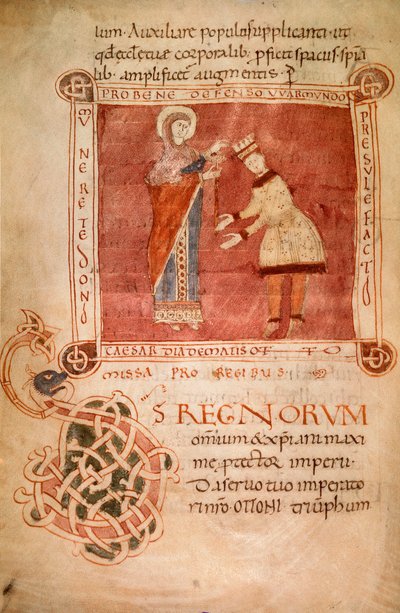 lum · Auxiliare populo supplicanti · ut
qd ecclesiae corporalib; pficit spacus · spia
lib · amplificet augmentis · P
PRO BENE DEFENSO VVARMUNDO
PRESULE FACTO
MUNERE TE DONI
CAESAR DIADEMATIS OTTO
MISSA PRO REGIBUS
DS REGNORUM
omnium & xpiani maxi
me ptector imperii ·
Da servo tuo imperato
ri nro · OTTONI · triuphum